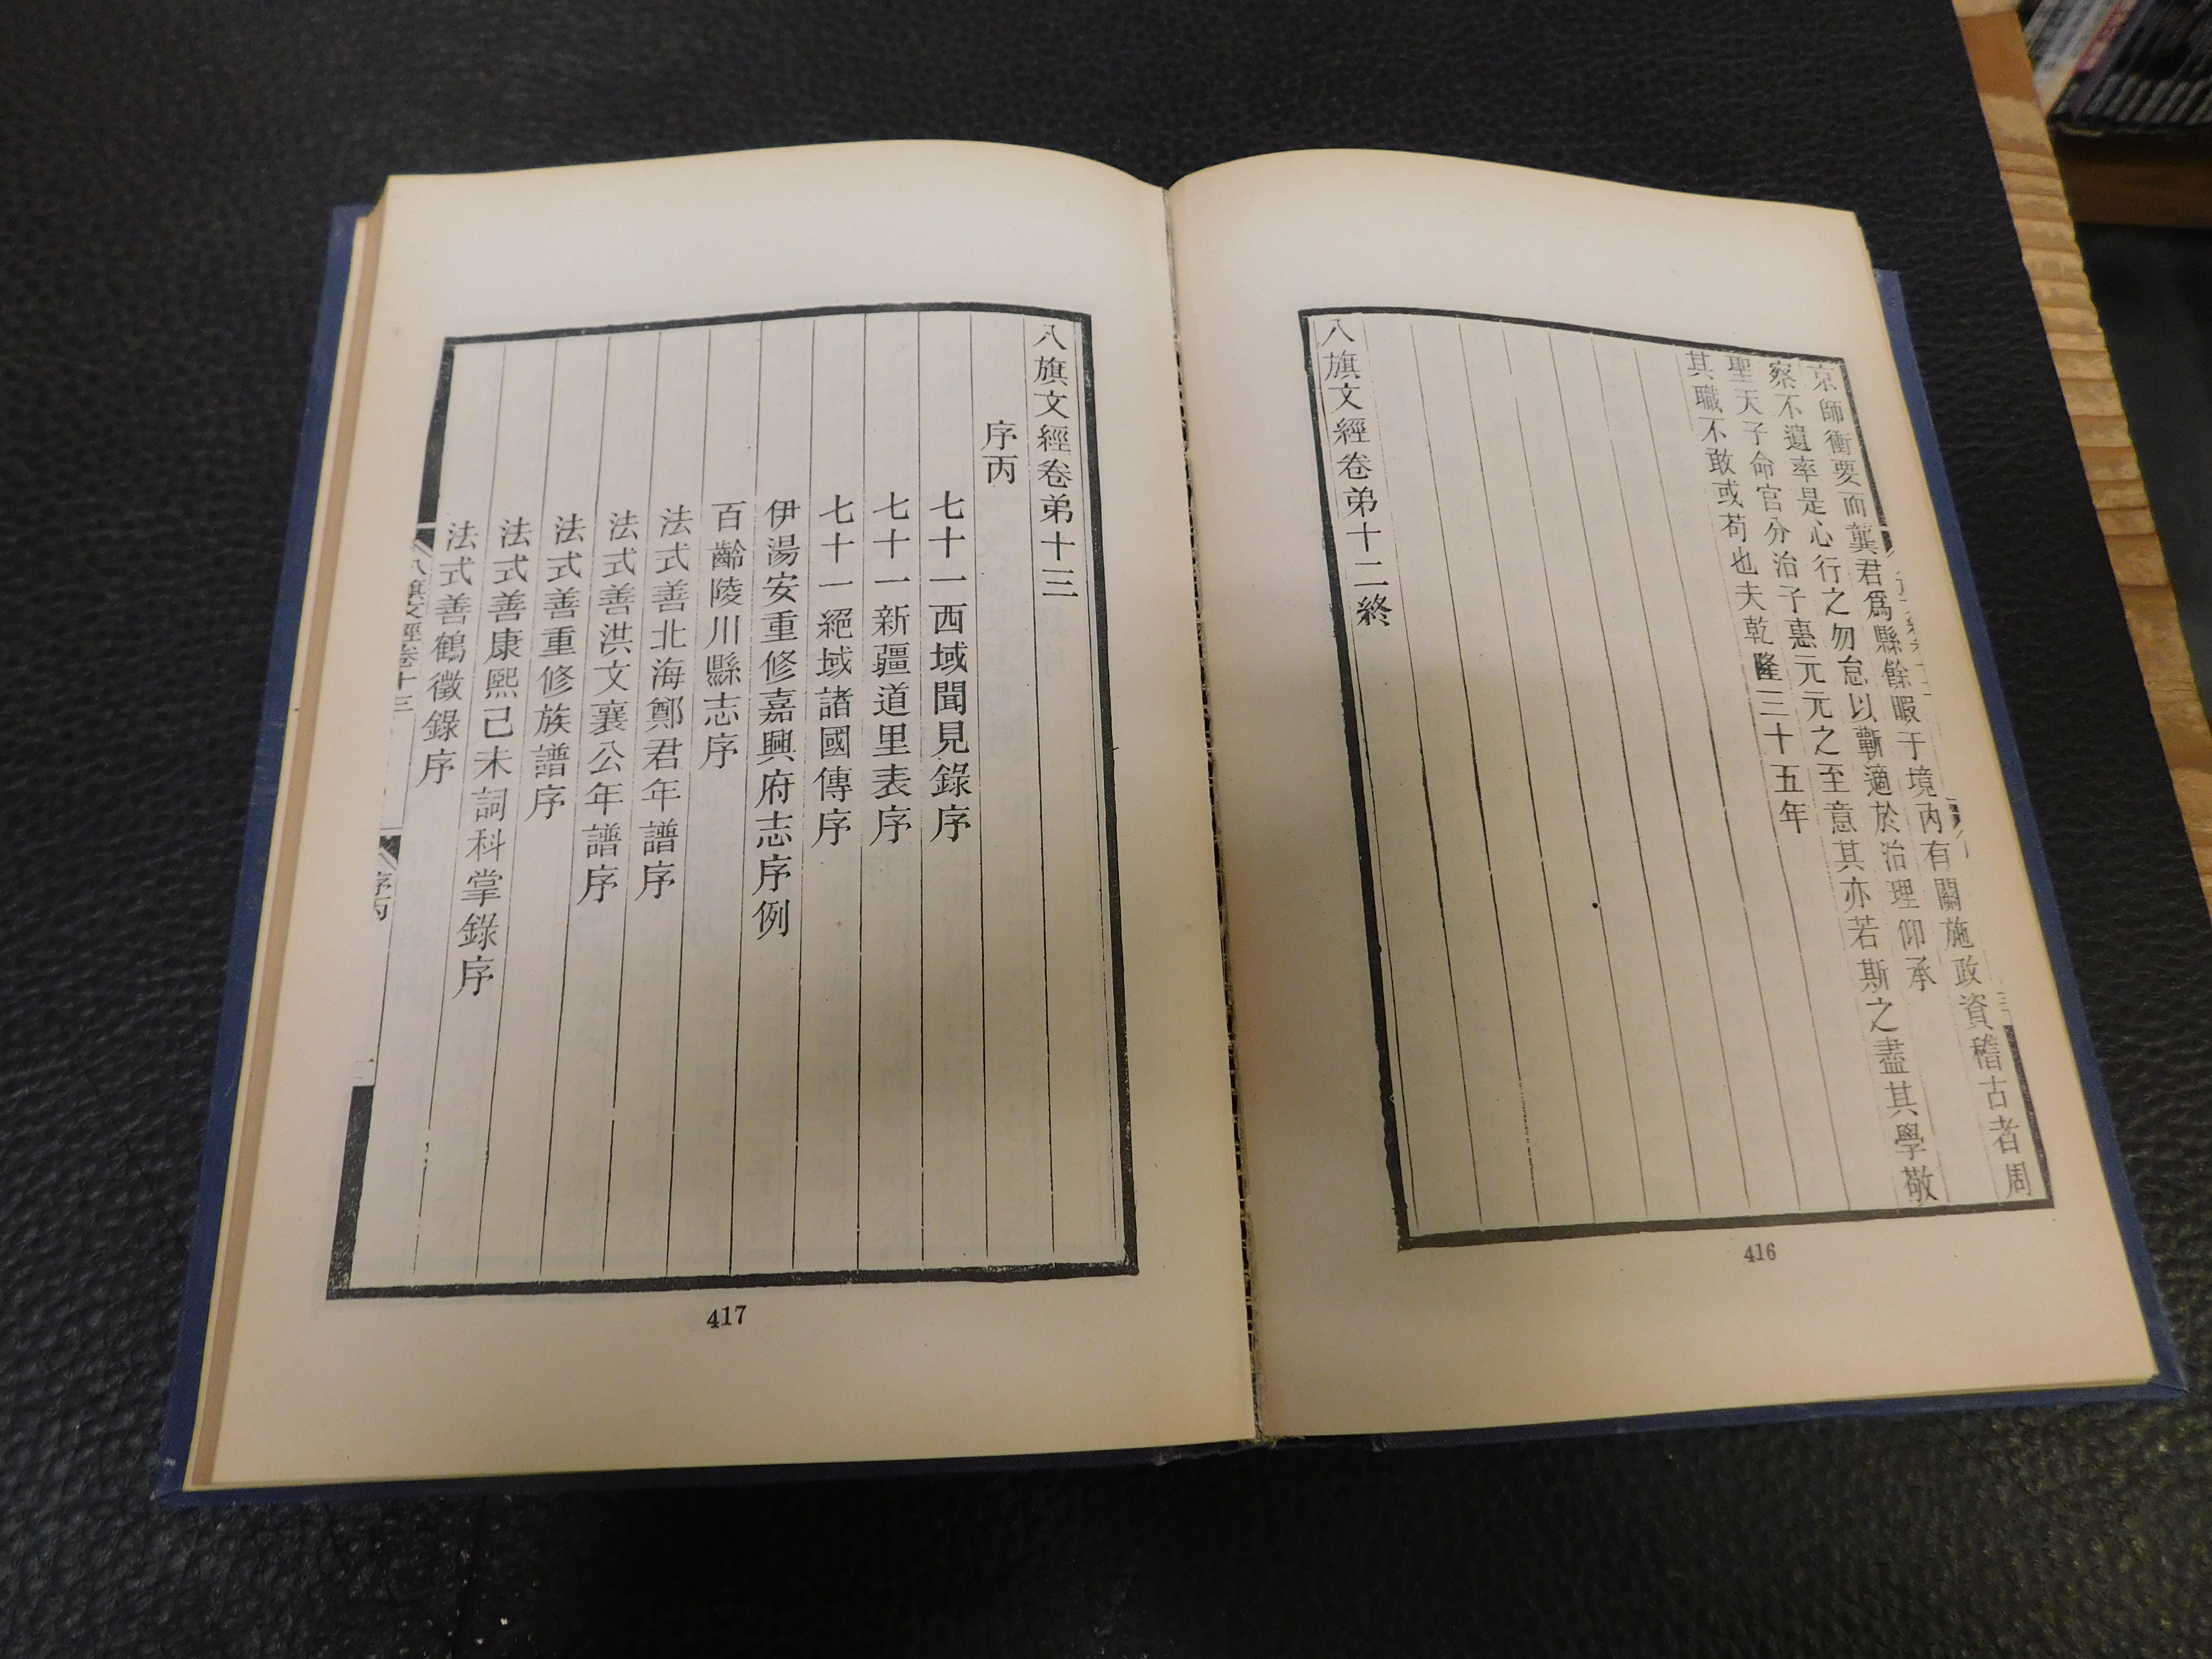 京師衝要而龔君爲縣餘暇于境內有關施政資稽古者周
察不遺率是心行之勿怠以蘄適於治理仰承
聖天子命官分治子惠元元之至意其亦若斯之盡其學敬
其職不敢或苟也夫乾隆三十五年
八旗文經卷弟十二終
416
八旗文經卷弟十三
序丙
七十一西域聞見錄序
七十一新疆道里表序
七十一絕域諸國傳序
伊湯安重修嘉興府志序例
百齡陵川縣志序
法式善北海鄭君年譜序
法式善洪文襄公年譜序
法式善重修族譜序
法式善康熙己未詞科掌錄序
法式善鶴徵錄序
八旗文經卷十三
序丙
一
417